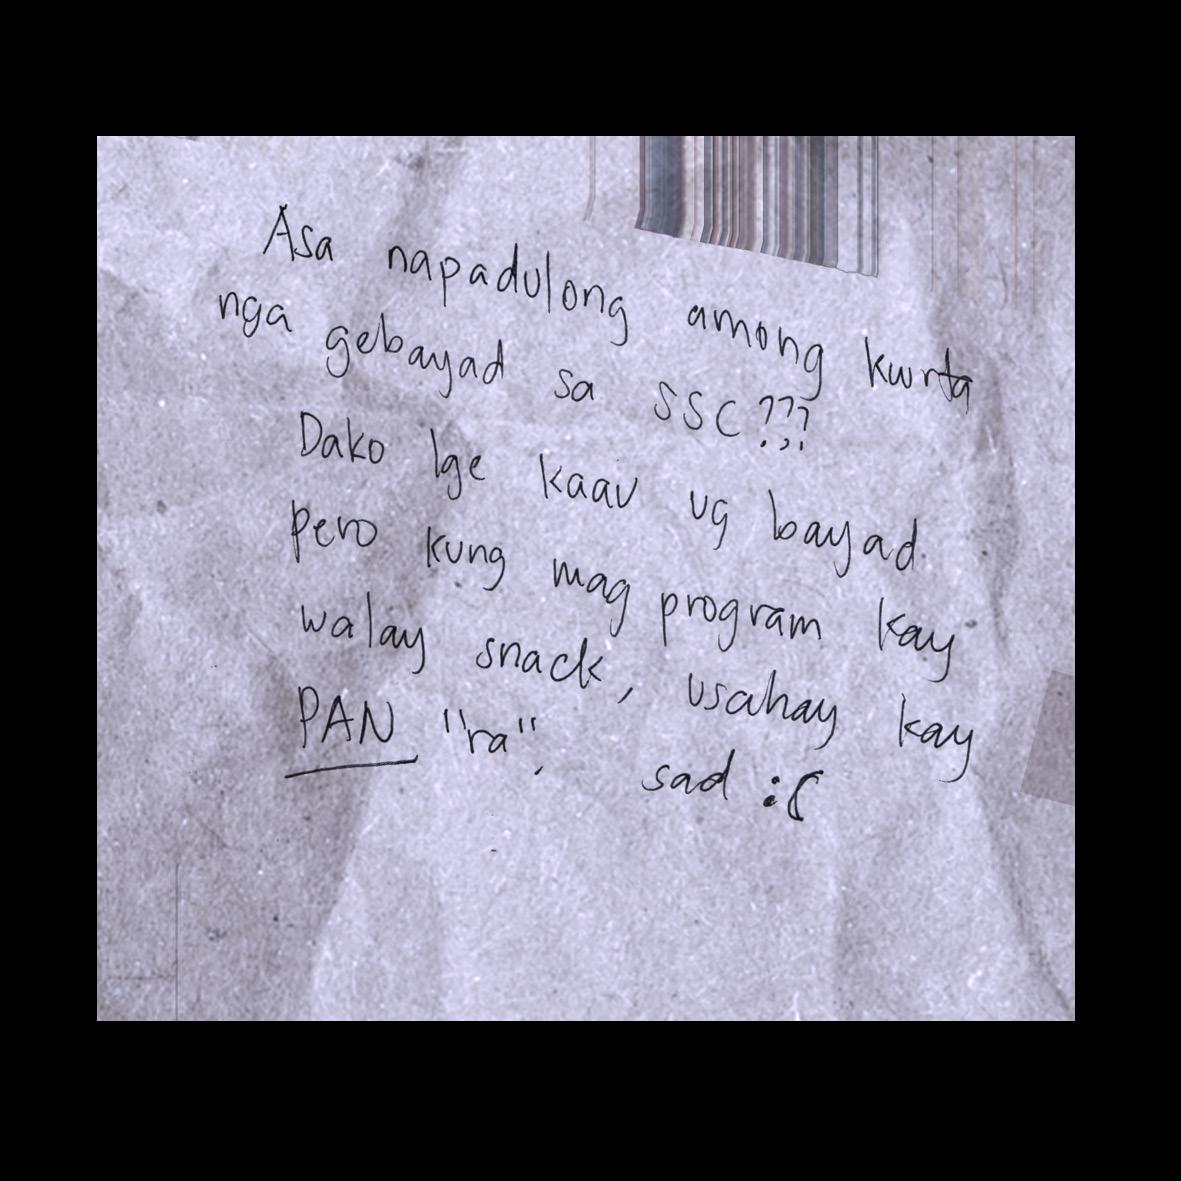 Asa napadulong among kwrta
nga gebayad sa SSC???
Dako lge kaau ug bayad
pero kung mag program kay
walay snack, usahay kay
PAN "ra", sad :(